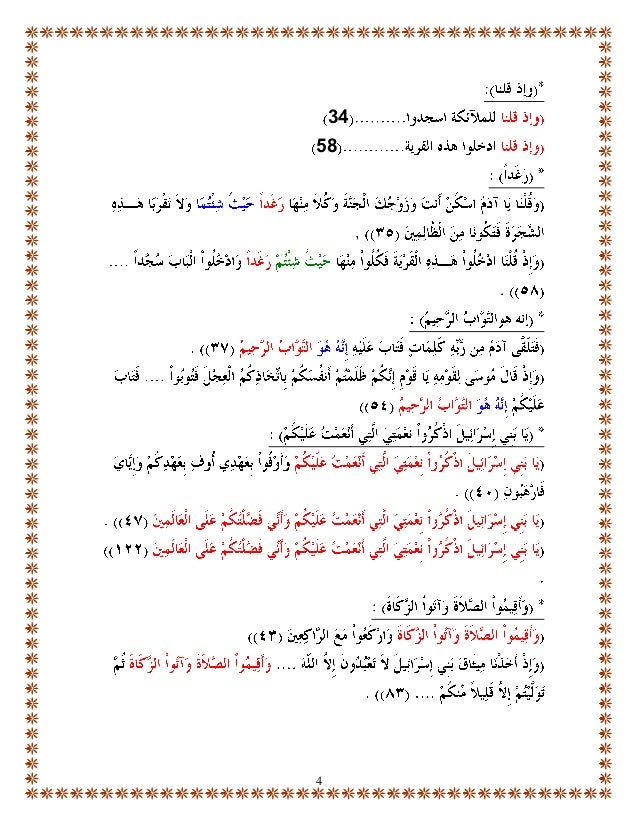 *(وإذ قلنا):
(وإذ قلنا للملآئكة اسجدوا..........(34)
(وإذ قلنا ادخلوا هذه القرية............(58)
* (رَغَداً) :
(وَقُلْنَا يَا آدَمُ اسْكُنْ أَنتَ وَزَوْجُكَ الْجَنَّةَ وَكُلاَ مِنْهَا رَغَداً حَيْثُ شِئْتُمَا وَلاَ تَقْرَبَا هَـــذِهِ
الشَّجَرَةَ فَتَكُونَا مِنَ الْظَّالِمِينَ (٣٥)) ,
(وَإِذْ قُلْنَا ادْخُلُواْ هَـــذِهِ الْقَرْيَةَ فَكُلُواْ مِنْهَا حَيْثُ شِئْتُمْ رَغَداً وَادْخُلُواْ الْبَابَ سُجَّداً ....
(٥٨)) .
* (إنه هوالتَّوَّابُ الرَّحِيمُ) :
(فَتَلَقَّى آدَمُ مِن رَّبِّهِ كَلِمَاتٍ فَتَابَ عَلَيْهِ إِنَّهُ هُوَ التَّوَّابُ الرَّحِيمُ (٣٧)) .
(وَإِذْ قَالَ مُوسَى لِقَوْمِهِ يَا قَوْمِ إِنَّكُمْ ظَلَمْتُمْ أَنفُسَكُمْ بِاتِّخَاذِكُمُ الْعِجْلَ فَتُوبُواْ .... فَتَابَ
عَلَيْكُمْ إِنَّهُ هُوَ التَّوَّابُ الرَّحِيمُ (٥٤))
* (يَا بَنِي إِسْرَائِيلَ اذْكُرُواْ نِعْمَتِيَ الَّتِي أَنْعَمْتُ عَلَيْكُمْ) :
(يَا بَنِي إِسْرَائِيلَ اذْكُرُواْ نِعْمَتِيَ الَّتِي أَنْعَمْتُ عَلَيْكُمْ وَأَوْفُواْ بِعَهْدِي أُوفِ بِعَهْدِكُمْ وَإِيَّايَ
فَارْهَبُونِ (٤٠)) .
(يَا بَنِي إِسْرَائِيلَ اذْكُرُواْ نِعْمَتِيَ الَّتِي أَنْعَمْتُ عَلَيْكُمْ وَأَنِّي فَضَّلْتُكُمْ عَلَى الْعَالَمِينَ (٤٧)) .
(يَا بَنِي إِسْرَائِيلَ اذْكُرُواْ نِعْمَتِيَ الَّتِي أَنْعَمْتُ عَلَيْكُمْ وَأَنِّي فَضَّلْتُكُمْ عَلَى الْعَالَمِينَ (١٢٢))
.
* (وَأَقِيمُواْ الصَّلاَةَ وَآتُواْ الزَّكَاةَ) :
(وَأَقِيمُواْ الصَّلاَةَ وَآتُواْ الزَّكَاةَ وَارْكَعُواْ مَعَ الرَّاكِعِينَ (٤٣))
(وَإِذْ أَخَذْنَا مِيثَاقَ بَنِي إِسْرَائِيلَ لاَ تَعْبُدُونَ إِلاَّ اللّهَ .... وَأَقِيمُواْ الصَّلاَةَ وَآتُواْ الزَّكَاةَ ثُمَّ
تَوَلَّيْتُمْ إِلاَّ قَلِيلاً مِّنكُمْ .... (٨٣)) .
4